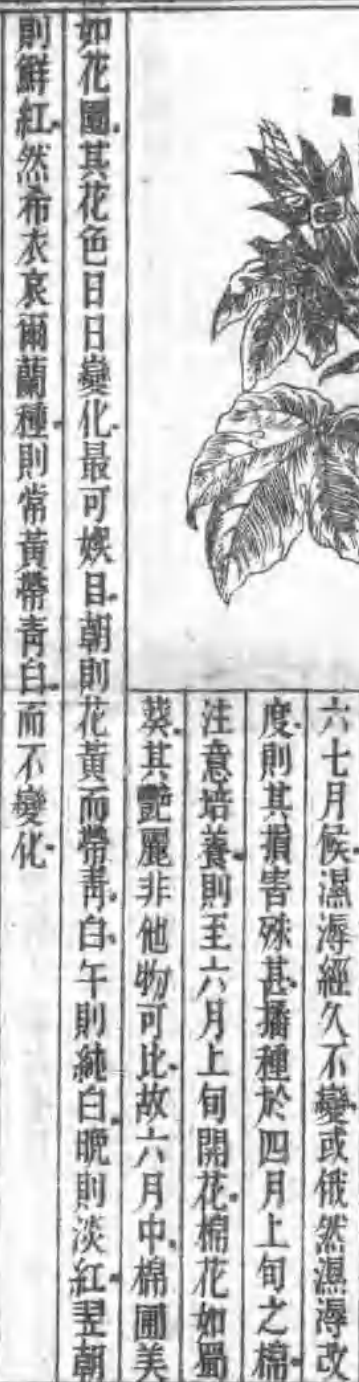 六七月候。濕溽經久不變。或俄然濕溽改
度。則其損害殊甚。播種於四月上旬之棉。
注意培養。則至六月上旬開花。棉花如蜀
葵。其艷麗非他物可比。故六月中。棉圃美
如花園。其花色日日變化。最可娛目。朝則花黃而帶青白。午則純白。晚則淡紅。翌朝
則鮮紅。然希衣哀爾蘭種。則常黃帶青白。而不變化。